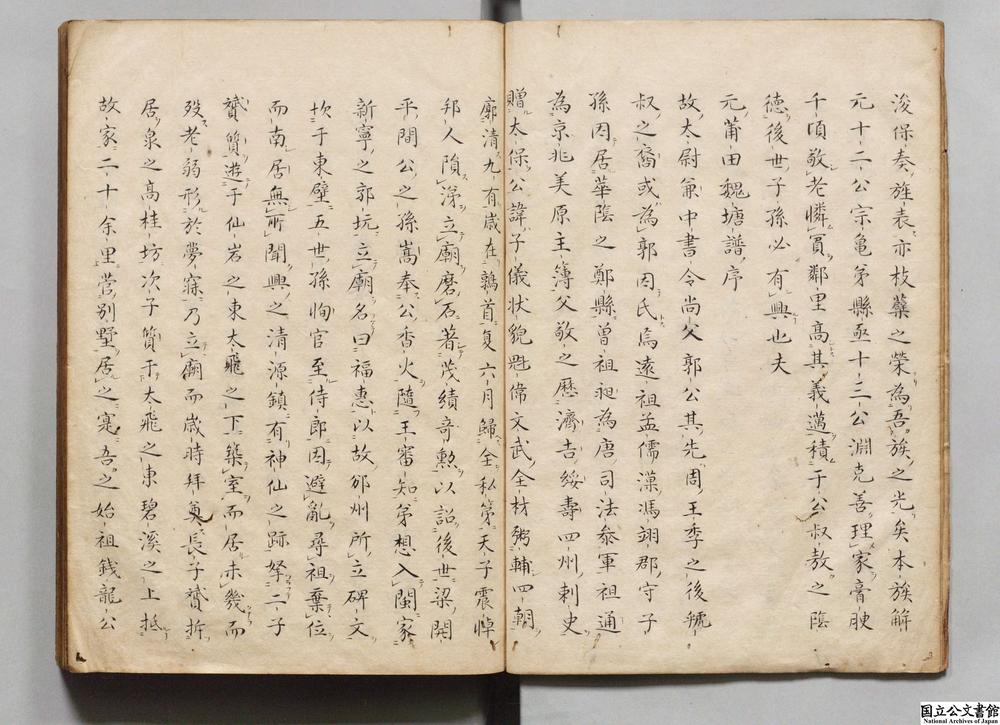 浚保奏旌表亦枝葉之榮為吾族之光矣本族解
元十二公宗亀弟縣丞十三公淵克善理家膏腴
千頃敬老憐貧鄰里高其義邁積于公叔敖之陰
徳後世子孫必有興也夫
元莆田魏塘譜序
故太尉兼中書令尚父郭公其先周王季之後虢
叔之裔或為郭因氏焉遠祖孟儒漢馮翊郡守子
孫因居華陰之鄭縣曾祖昶為唐司法參軍祖通
為京兆美原主簿父敬之歷濟吉綏壽四州刺史
贈太保公諱子儀状貌魁偉文武全材弼輔四朝
廓清九有歳在鶉首夏六月歸全私第天子震悼
邦人隕涕立廟磨石著茂績奇勲以詔後世梁開
平間公之孫嵩奉公香火隨王審知弟想入閩家
新寧之郭坑立廟名曰福惠以故邠州所立碑文
坎于東壁五世孫恂官至侍郎因避亂尋祖棄位
而南居無所聞興之清源鎮有神仙之跡孥二子
贇質遊于仙岩之東太飛之下築室而居未幾而
歿老弱形於夢寐乃立廟而歳時拜奠長子贇折
居泉之髙桂坊次子質于太飛之東碧溪之上抵
故家二十余里营別墅居之寔吾之始祖錢龍公
国立公文書館
National Archives of Japan